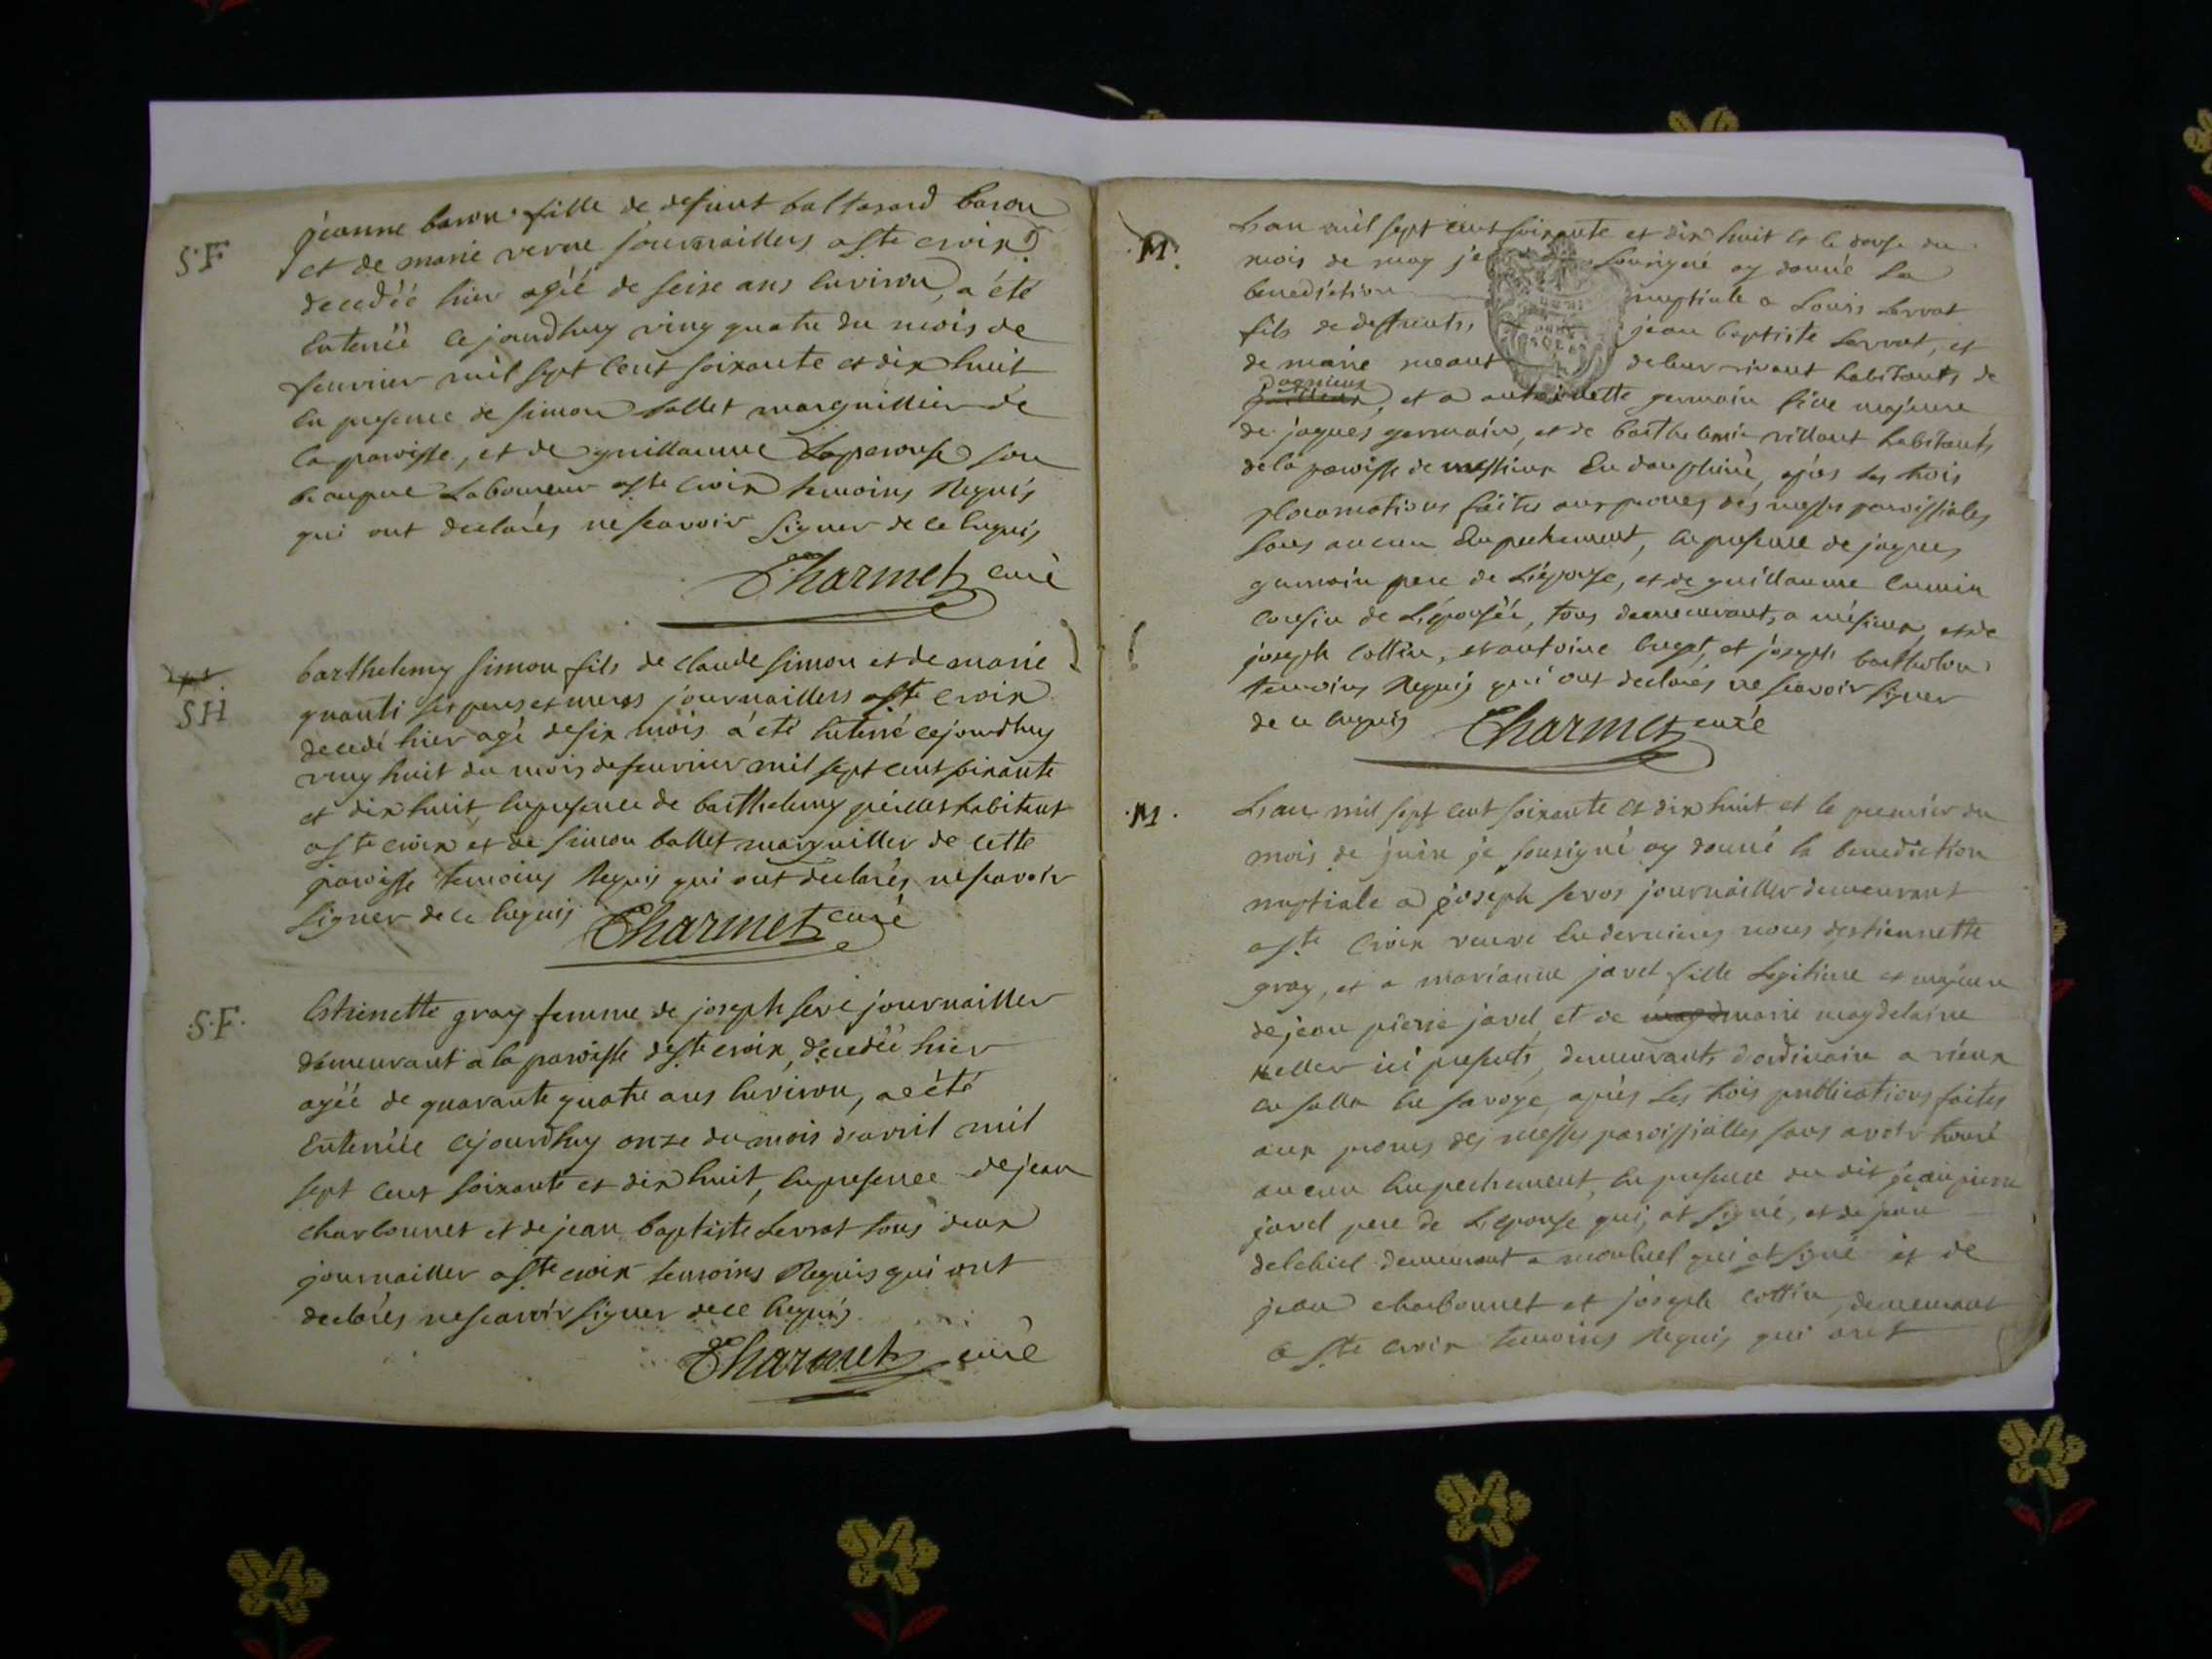 S.F
jeanne baron fille de defunt baltasard baron
et de marie verne journailliers a ste croix
decedéé hier agéé de seize ans environ, a été
enterréé ce jourdhuy ving quatre du mois de
feuvrier mil sept cent soixante et dix huit
en presence de simon ballet marguillier de
la paroisse, et de guillaume Laperouse son
beaupere Laboureur a ste croix temoins Requis
qui ont declarés ne scavoir signer de ce enquis
Charmet curé
SH
barthelemy simon fils de claude simon et de marie
ses peres et meres journaillers a ste croix
decedé hier agé de six mois a été enterré cejourdhuy
ving huit du mois de feuvrier mil sept cent soixante
et dix huit, en presence de barthelemy habitant
a ste croix et de simon ballet marguillier de cette
paroisse temoins Requis qui ont declarés ne scavoir
signer de ce enquis Charmet curé
.S.F.
Estienette gray femme de joseph seve journailler
demeurant a la paroisse de ste croix, decedéé hier
agéé de quarante quatre ans environ, a été
enterréé cejourdhuy onze du mois d'avril mil
sept cent soixante et dix huit, en presence de jean
charbonnet et de jean baptiste servat tous deux
journailler a ste croix temoins Requis qui ont
declarés ne scavoir signer de ce enquis
Charmet curé
.M.
L'an mil sept cent soixante et dix huit et le douse du
mois de may je sousigné ay donné la
benediction nuptiale a Louis servat
fils de deffunts, jean baptiste servat, et
de marie de leur vivant habitants de
et a antoinette germain fille majeure
de jaques germain, et de barthelemie villant habitants
de la paroisse de messieux En dauphiné, apres les trois
proclamations faites aux prones des messes paroissiales
sans aucun Enpechement, en presence de jaques
germain pere de L'épouse, et de guillaume
cousin de L'épouséé, tous demeurant a mésieux, et de
joseph cottin, et antoine et joseph bartholon
temoins Requis qui ont declarés ne scavoir signer
de ce enquis Charmet curé
.M.
L'an mil sept cent soixante et dix huit et le premier du
mois de juin je sousigné ay donné la benediction
nuptiale a joseph sevos journailler demeurant
a ste croix veuve en dernieres noces destiennette
gray, et a marianne javel fille Legitime et majeure
de jean pierre javel, et de marie magdelaine
ici presents, demeurants d'ordinaire a vieux
en salla en savoye, apres les trois publications faites
aux prones des messes paroissialles sans avoir trouvé
aucun enpechement, en presence du dit jean pierre
javel pere de L'epouse qui at signé, et de jean
delebiel demeurant a monluel qui at signé et de
jean charbonnet et joseph cottin, demeurant
a ste croix temoins Requis qui ont